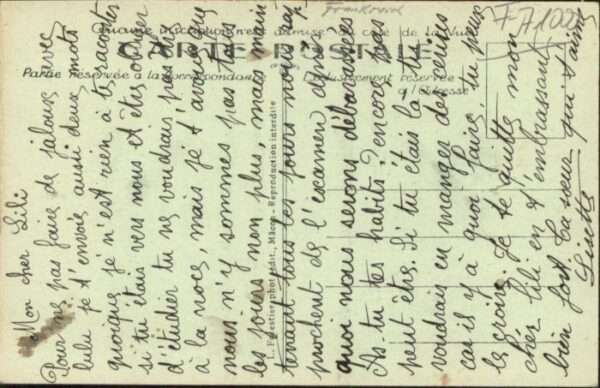 Frankovich
F71000
CARTE POSTALE
Partie réservée à la correspondance
Exclusivement réservée
à l'adresse
L. Ferrestier photo-édit., Mâcon - Reproduction interdite
Mon cher Lili
Pour ne pas faire de jaloux avec
lulu je t'envoie aussi deux mots
quoique je n'est rien à te raconter
si tu étais vers nous et être obliger
d'étudier tu ne voudrais pas être
à la noce, mais je t'avoue que
nous n'y sommes pas tous
les jours non plus, mais main
tenant tous les jours nous rap
prochent de l'examen après
quoi nous serons débarrassées
As-tu tes habits? encore pas
peut être. Si tu étais la tu
voudrais en manger des
car il y à quoi faire, tu peux
le croire. Je te quitte mon
cher lili en t'embrassant
bien fort ta sœur qui t'aime
Lisette